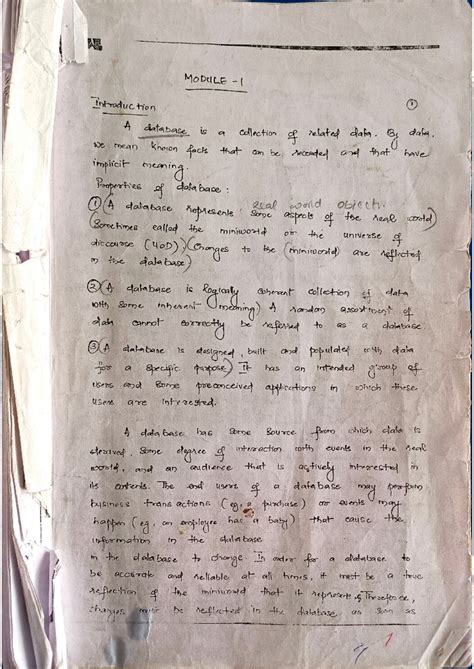 MODULE - 1
Introduction
1
A database is a collection of related data. By data,
we mean known facts that can be recorded and that have
implicit meaning.
Properties of database :
1 (A database represents some aspects of the real world)
real world object.
(Sometimes called the miniworld or the universe of
discourse (UoD)) (changes to the (miniworld) are reflected
in the database)
2 (A database is logically coherent collection of data
with some inherent meaning) A random assortment of
data cannot correctly be referred to as a database.
3 (A database is designed, built and populated with data
for a specific purpose) It has an intended group of
users and some preconceived applications in which these
users are interested.
A database has some source from which data is
derived, some degree of interaction with events in the real
world, and an audience that is actively interested in
its contents. The end users of a database may perform
business transactions (eg, a purchase) or events may
happen (eg, an employee has a baby) that cause the
information in the database
in the database to change. In order for a database to
be accurate and reliable at all times, it must be a true
reflection of the miniworld that it represents, Therefore,
changes must be reflected in the database as soon as
1